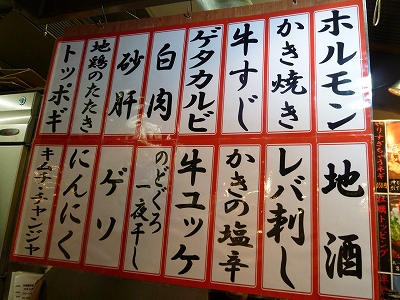 ホルモン
かき焼き
牛すじ
ゲタカルビ
白肉
砂肝
地鶏のたたき
トッポギ
地酒
レバ刺し
かきの塩辛
牛ユッケ
のどぐろ
一夜干し
ゲソ
にんにく
キムチ・チャンジャ